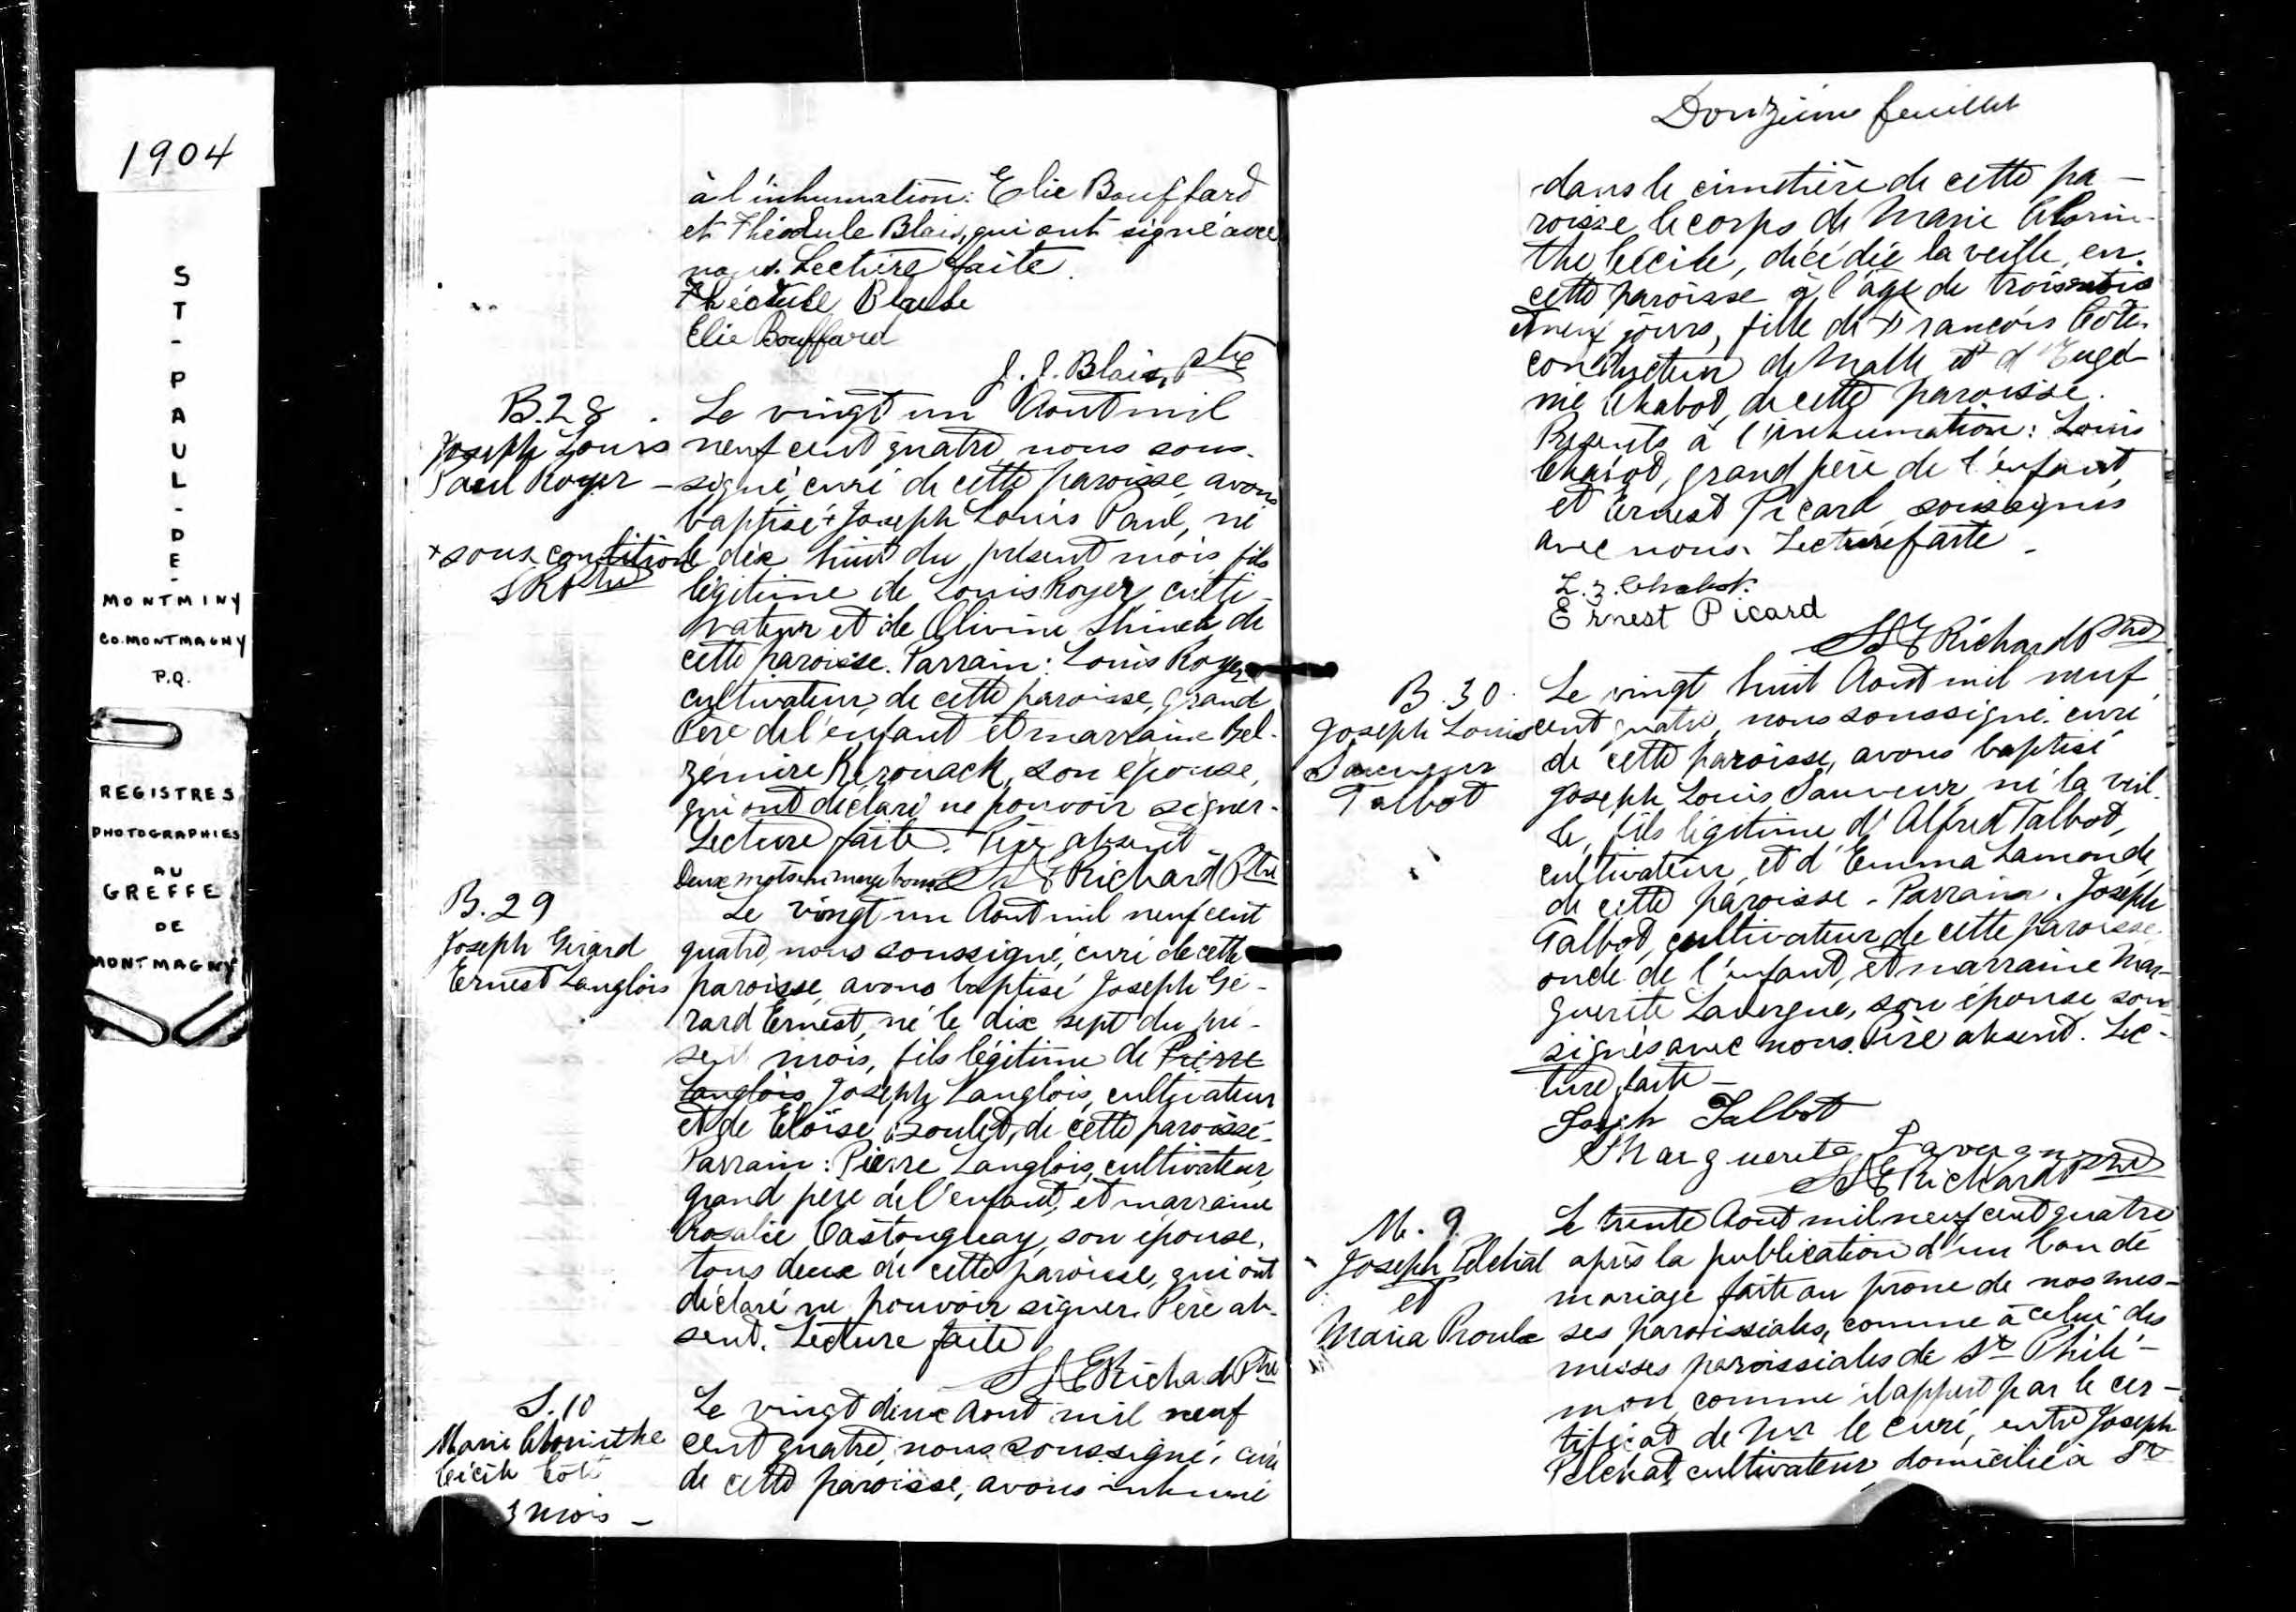 1904
ST-PAUL-DE-
MONTMINY
CO. MONTMAGNY
P.Q.
REGISTRES
PHOTOGRAPHIES
AU
GREFFE
DE
MONTMAGNY
à l'inhumation: Elie Bouffard
et Théodule Blais, qui ont signé avec
nous. Lecture faite.
Théodule
Elie Bouffard
J. J. Blais, Ptre
B.28
Joseph Louis
Paul Royer
+ sous condition
Le vingt un Aout mil
neuf cent quatre, nous sous-
signé, curé de cette paroisse, avons
baptisé + Joseph Louis Paul, né
le dix huit du présent mois, fils
légitime de Louis Royer, culti-
vateur et de Olivine de
cette paroisse. Parrain: Louis Royer
cultivateur de cette paroisse, grand
Père de l'enfant et marraine Bel-
zémire Kérouack, son épouse,
qui ont déclaré ne pouvoir signer.
Lecture faite. Père absent
Deux mots en marge bons Richard Ptre
B.29
Joseph Gérard
Ernest Langlois
Le vingt un Aout mil neuf cent
quatre, nous soussigné, curé de cette
paroisse, avons baptisé Joseph Gé-
rard Ernest, né le dix sept du pré-
sent mois, fils légitime de Pierre
Langlois Joseph Langlois, cultivateur
et de Eloïse Boulet, de cette paroisse.
Parrain: Pierre Langlois, cultivateur,
grand père de l'enfant, et marraine
Rosalie Castonguay, son épouse,
tous deux de cette paroisse, qui ont
déclaré ne pouvoir signer. Père ab-
sent. Lecture faite
Richard Ptre
S.10
Marie
Cécile Côté
3 mois -
Le vingt deux Aout mil neuf
cent quatre, nous soussigné, curé
de cette paroisse, avons inhumé
Douzième feuillet
dans le cimetière de cette pa-
roisse le corps de Marie
Cécile, décédée la veille, en
cette paroisse à l'âge de trois mois
et neuf jours, fille de François Côté,
conducteur de malle et d'Eugé-
nie Chabot, de cette paroisse.
Présents à l'inhumation: Louis
Chabot, grand père de l'enfant,
et Ernest Picard, soussignés
avec nous. Lecture faite -
L. Z. Chabot.
Ernest Picard
Richard Ptre
B.30
Joseph Louis
Sauveur
Talbot
Le vingt huit Aout mil neuf
cent quatre, nous soussigné, curé
de cette paroisse, avons baptisé
Joseph Louis Sauveur, né la veil-
le, fils légitime d'Alfred Talbot,
cultivateur, et d'Emma Lamonde,
de cette paroisse - Parrain: Joseph
Talbot, cultivateur de cette paroisse,
oncle de l'enfant, et marraine Mar-
guerite Lavergne, son épouse, sous-
signés avec nous. Père absent. Lec-
ture faite -
Joseph Talbot
Marguerite Lavergne
Richard Ptre
M. 9
Joseph Pelchat
et
Maria Proulx
Le trente Aout mil neuf cent quatre
après la publication d'un ban de
mariage faite au prône de nos mes-
ses paroissiales, comme à celui des
messes paroissiales de St Philé-
mon comme il appert par le cer-
tificat de Mr le Curé, entre Joseph
Pelchat, cultivateur domicilié à St